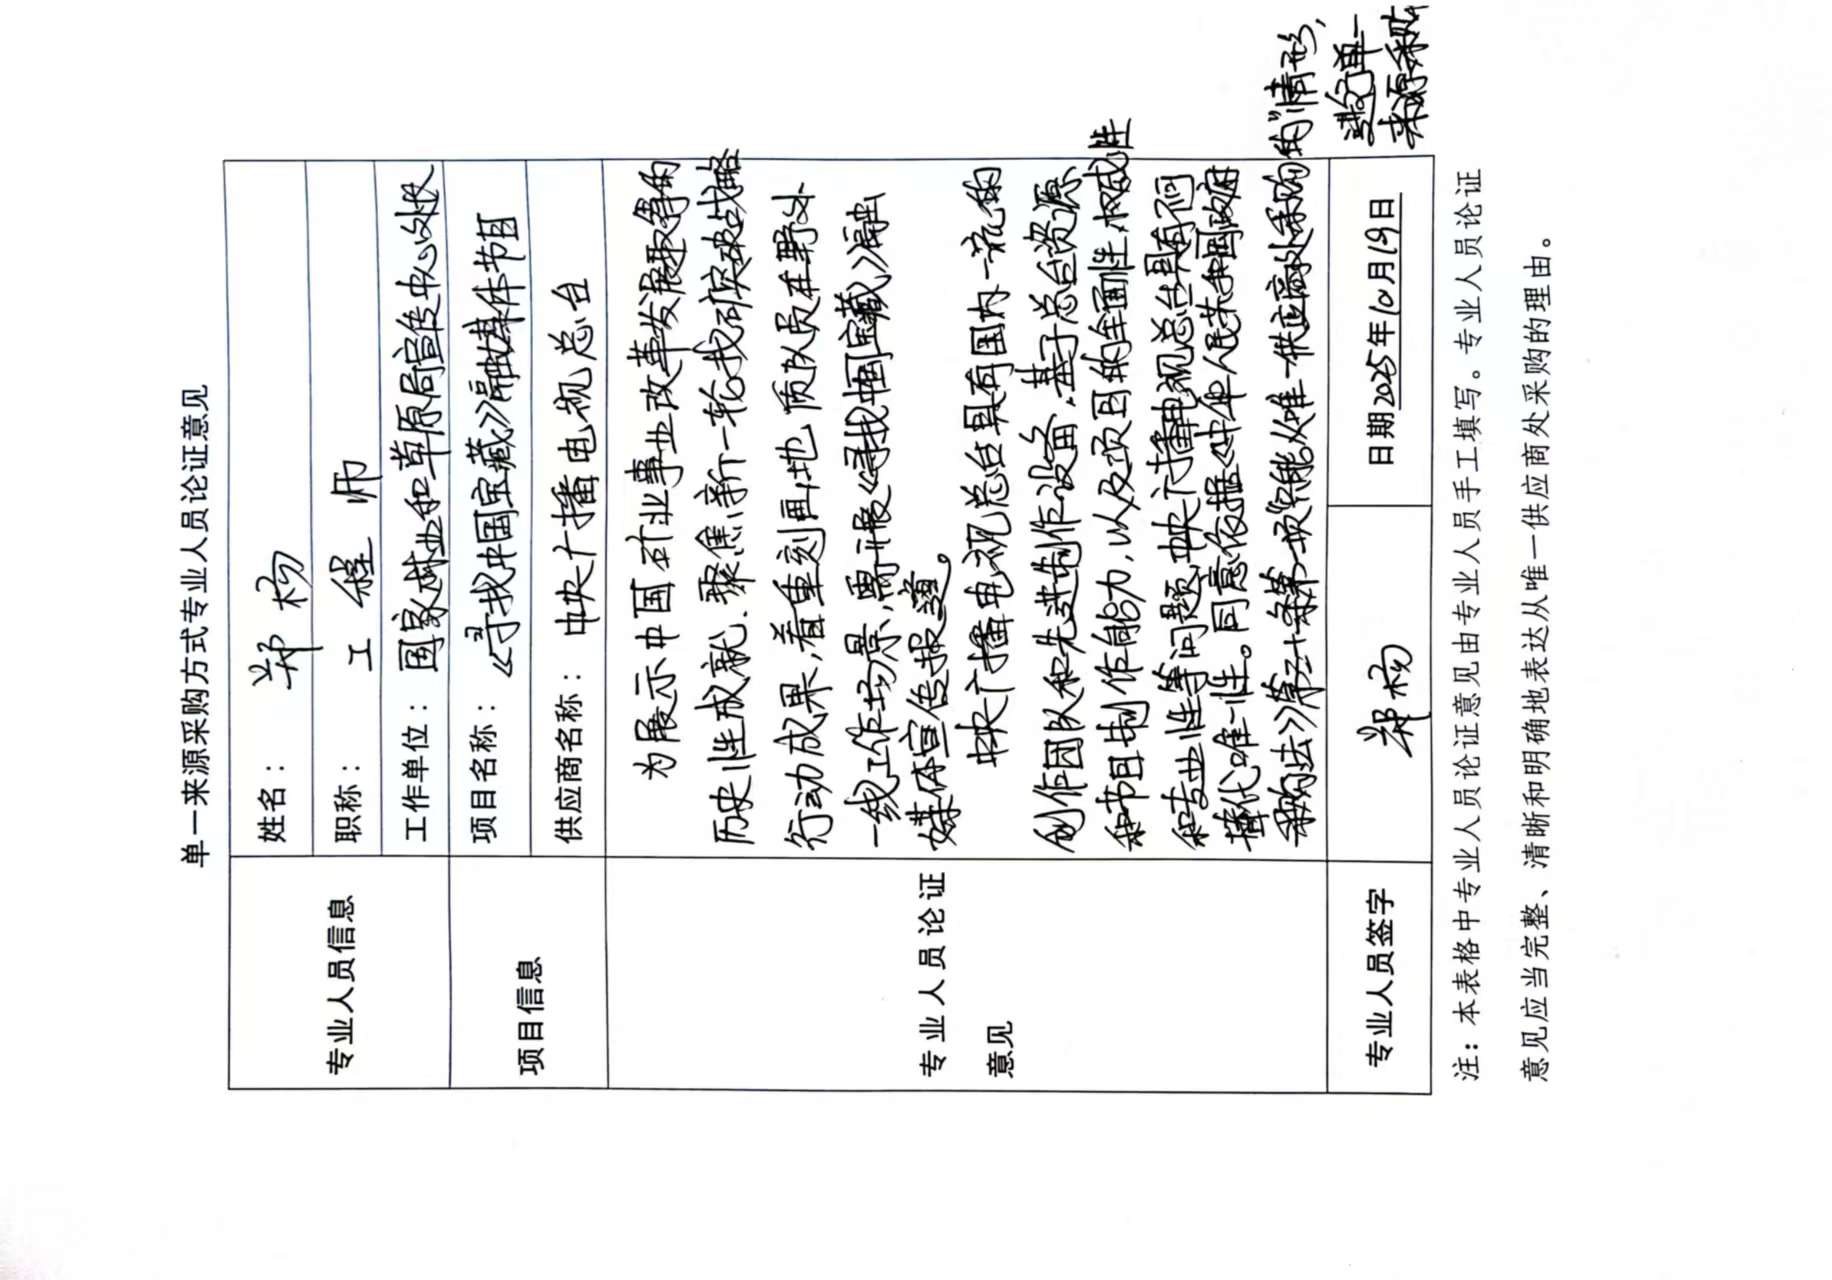 单一来源采购方式专业人员论证意见
专业人员信息
姓名： 郑杨
职称： 工程师
工作单位： 国家林业和草原局宣传中心处长
项目信息
项目名称： 《寻找中国宝藏》融媒体节目
供应商名称： 中央广播电视总台
专业人员论证
意见
为展示中国矿业事业改革发展取得的
历史性成就，聚焦新一轮找矿突破战略
行动成果，着重刻画地质队员在野外
一线工作场景，需开展《寻找中国宝藏》融
媒体宣传报道。
中央广播电视总台具有国内一流的
创作团队和先进制作设备，基于总台资源
和节目制作能力，以及项目的全面性、权威性
和专业性等问题，中央广播电视总台具有不可
替代唯一性。同意依据《中华人民共和国政府
采购法》第三十一条第一项"只能从唯一供应商处采购的"情形，
进行单一
来源采购
专业人员签字 郑杨 日期2025年10月19日
注：本表格中专业人员论证意见由专业人员手工填写。专业人员论证
意见应当完整、清晰和明确地表达从唯一供应商处采购的理由。